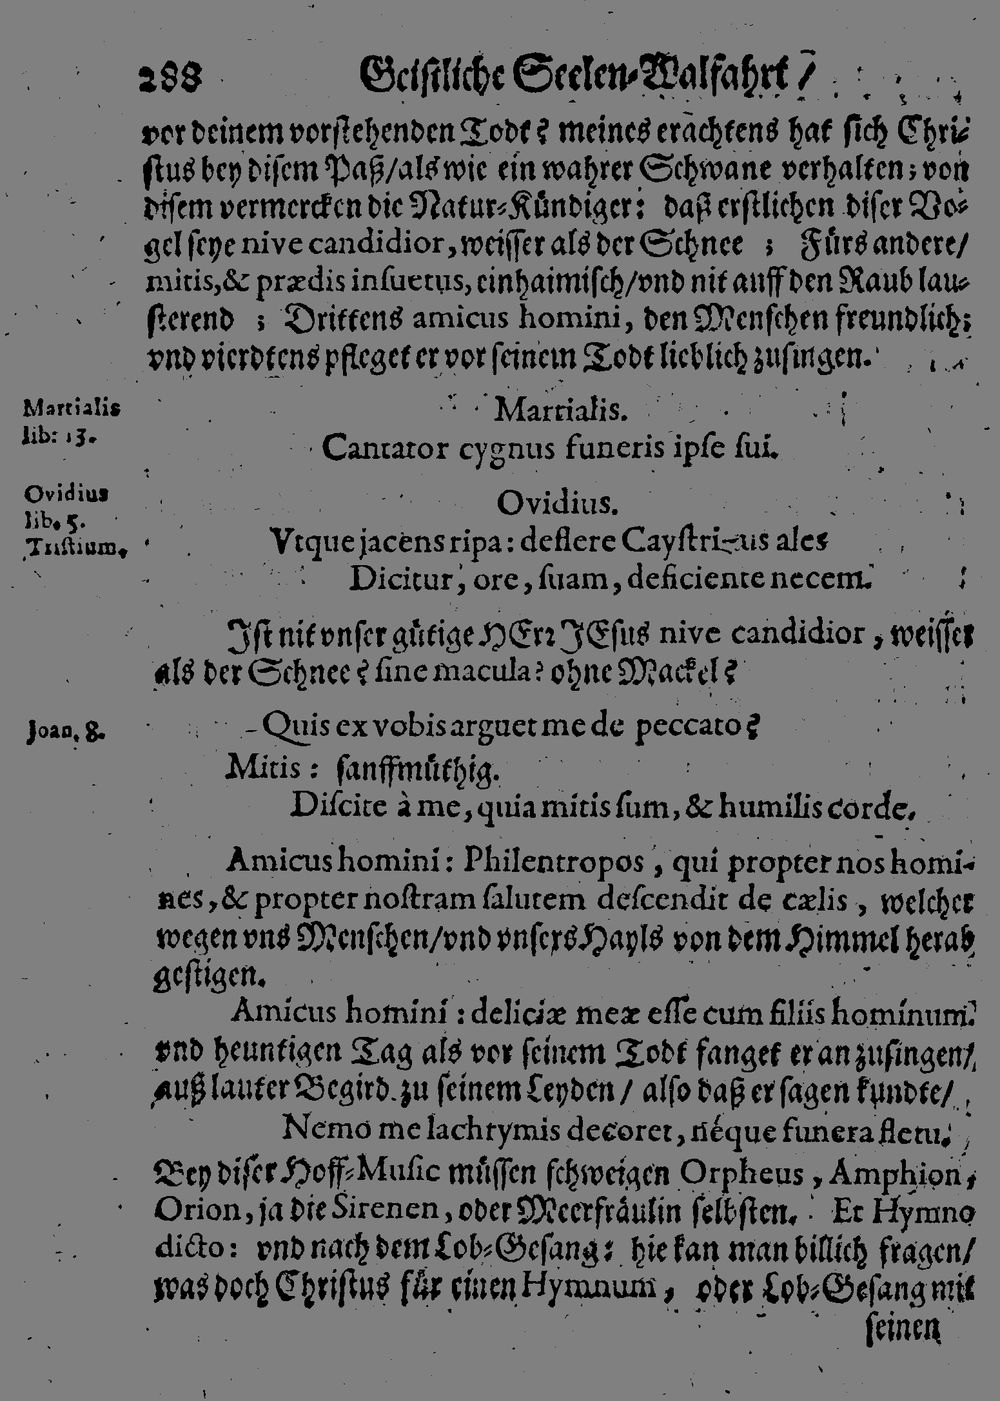 288 Geistliche Seelen-Walfahrt /
vor deinem vorstehenden Todt? meines erachtens hat sich Chri-
stus bey disem Paß/als wie ein wahrer Schwane verhalten; von
disem vermercken die Natur-Kündiger: daß erstlichen diser Vo-
gel seye nive candidior, weisser als der Schnee ; Fürs andere/
mitis,& prædis insuetus, einhaimisch/vnd nit auff den Raub lau-
sterend ; Drittens amicus homini, den Menschen freundlich;
vnd vierdtens pfleget er vor seinem Todt lieblich zusingen.
Martialis
lib: 13.
Martialis.
Cantator cygnus funeris ipse sui.
Ovidius
lib. 5.
Tristium.
Ovidius.
Vtque jacens ripa: deflere Caystrius ales
Dicitur, ore, suam, deficiente necem.
Ist nit vnser gütige HErr JEsus nive candidior, weisser
als der Schnee? sine macula? ohne Mackel?
Joan. 8.
Quis ex vobis arguet me de peccato?
Mitis: sanfftmüthig.
Discite à me, quia mitis sum, & humilis corde.
Amicus homini: Philentropos, qui propter nos homi-
nes,& propter nostram salutem descendit de cælis, welcher
wegen vns Menschen/vnd vnsers Hayls von dem Himmel herab
gestigen.
Amicus homini: deliciæ meæ esse cum filiis hominum.
vnd heuntigen Tag als vor seinem Todt fanget er an zusingen/
auß lauter Begird zu seinem Leyden / also daß er sagen kundte/
Nemo me lachrymis decoret, néque funera fletu.
Bey diser Hoff-Music müssen schweigen Orpheus, Amphion,
Orion, ja die Sirenen, oder Meerfräulin selbsten. Et Hymno
dicto: vnd nach dem Lob-Gesang: hie kan man billich fragen/
was doch Christus für einen Hymnum, oder Lob-Gesang mit
seinen